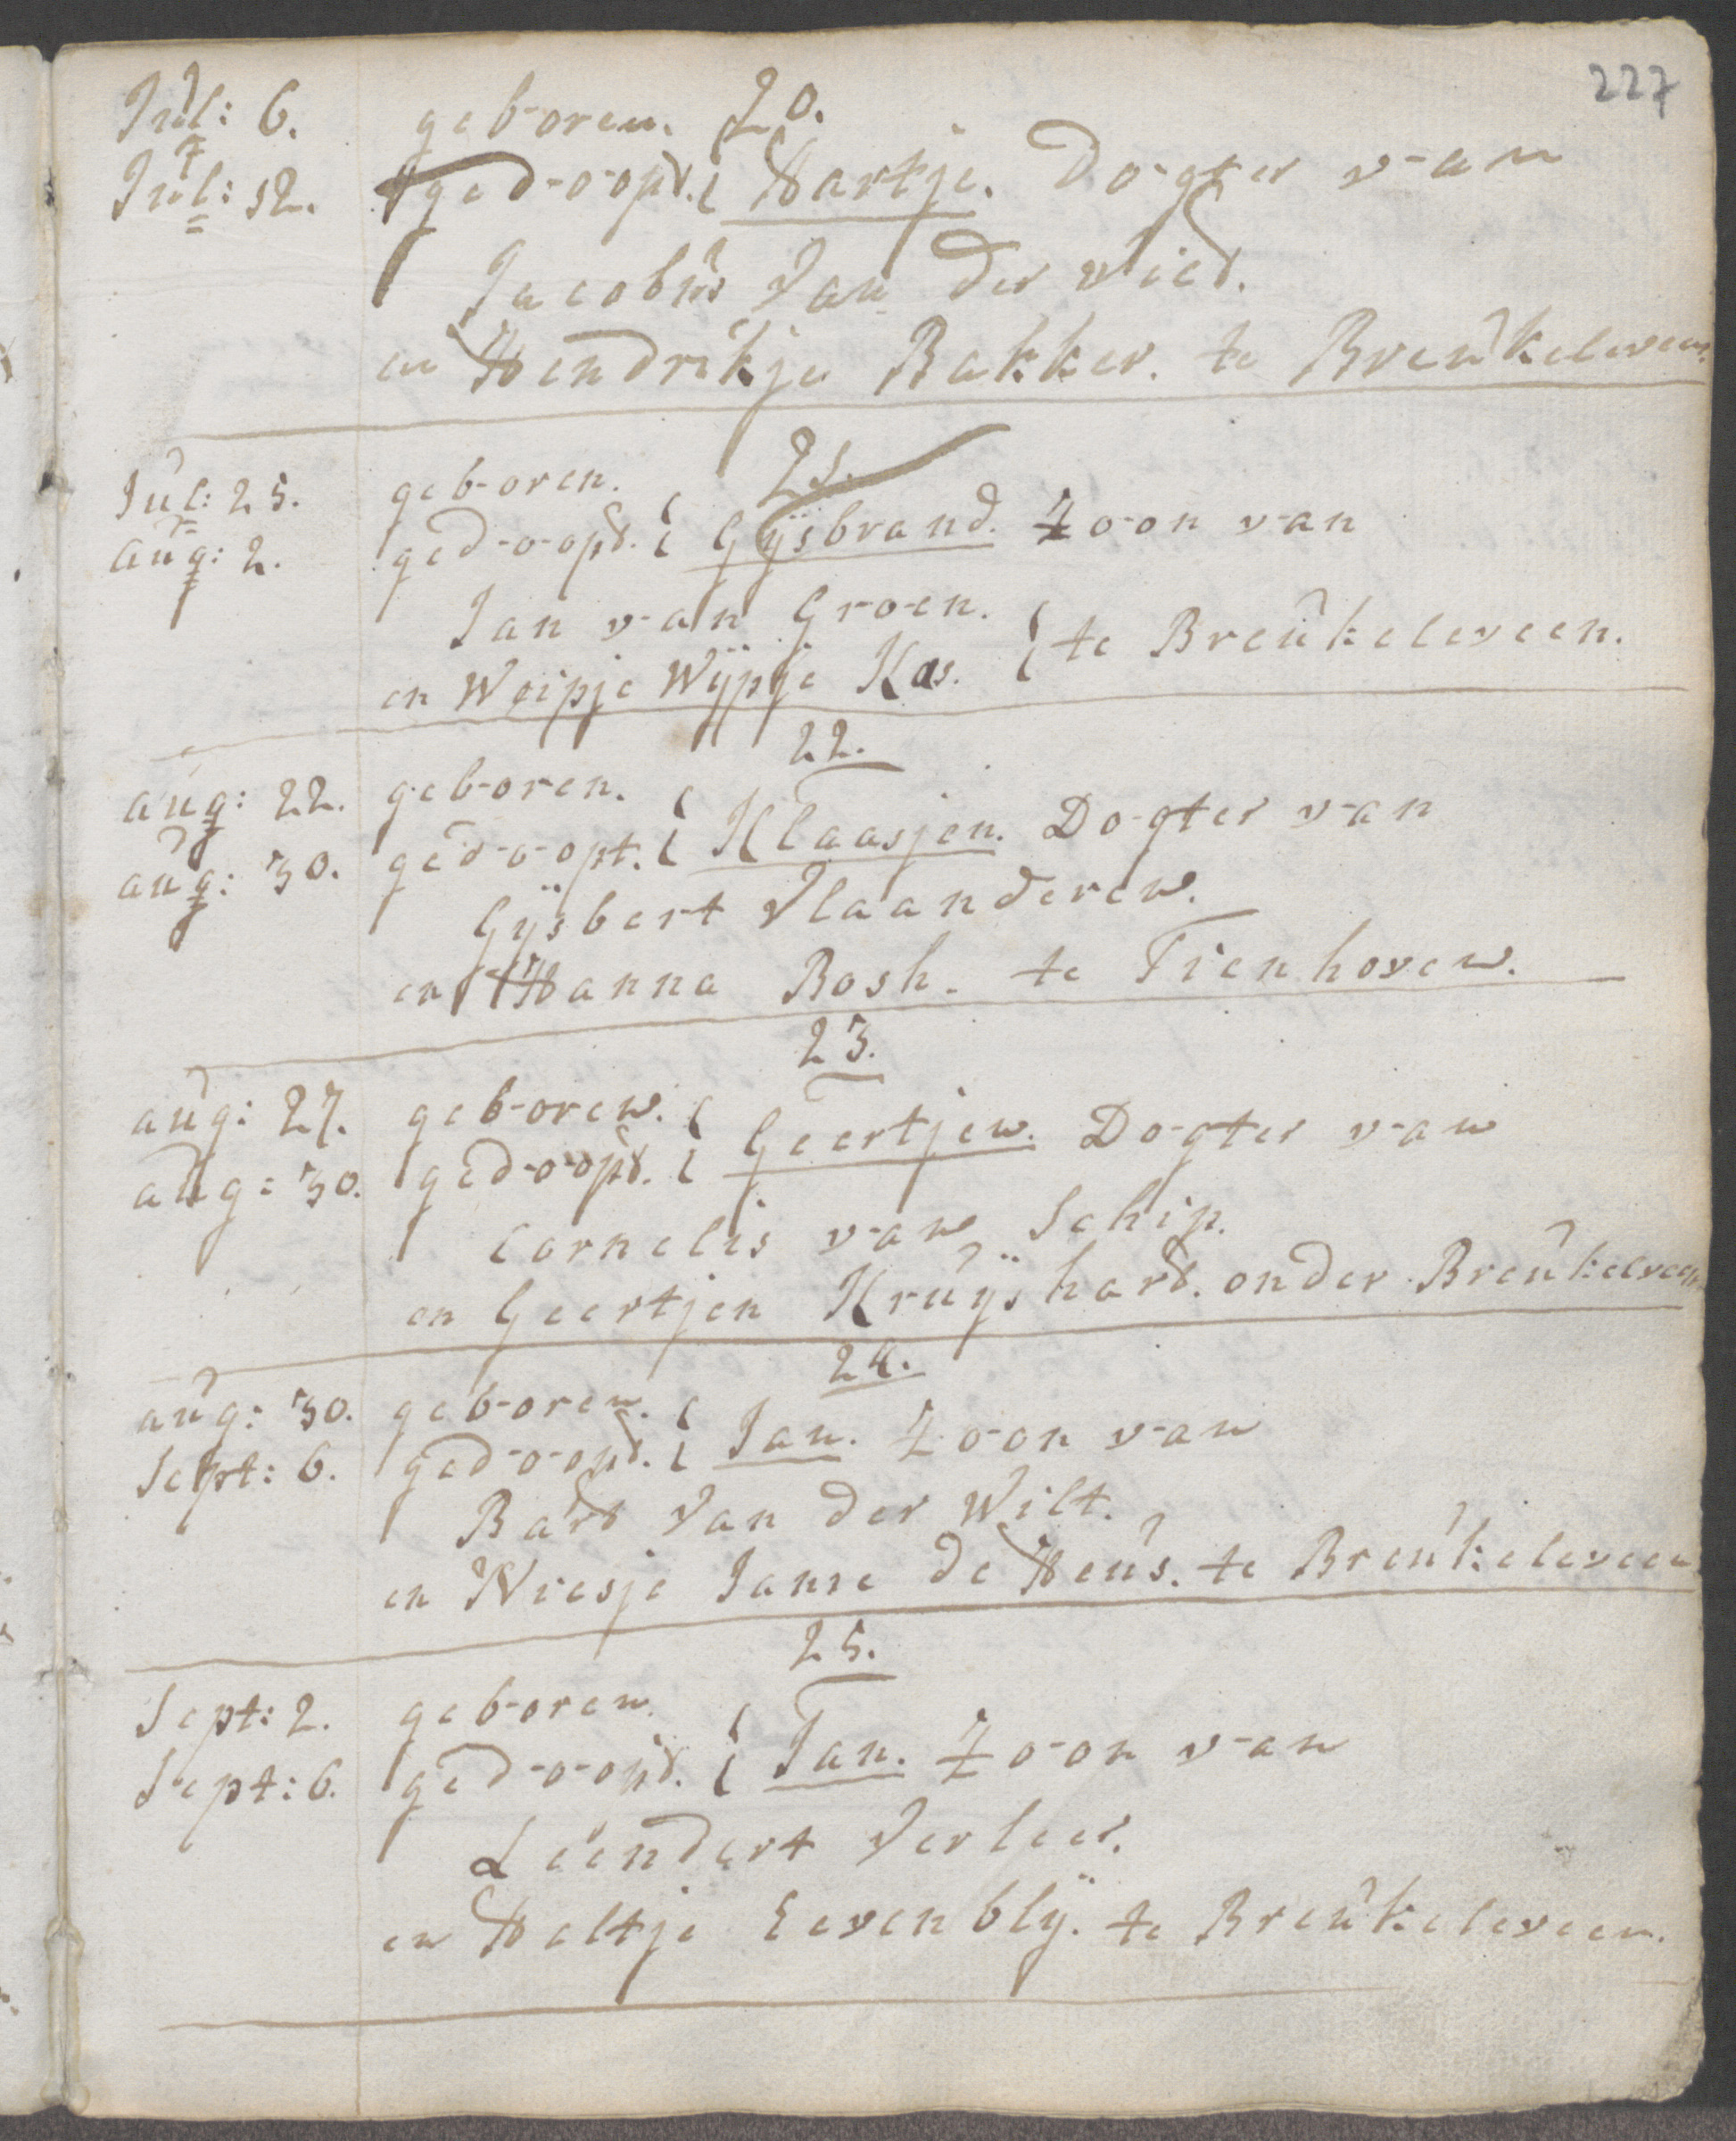 227
20.
Jul: 6. geboren.
Jul: 12. gedoopd. Hartje. Dogter van
Jacobus Van der Vliet.
en Hendrikje Bakker. te Breukeleveen.
21.
Jul: 25. geboren.
aug: 2. gedoopd. Gÿsbrand. Zoon van
Jan van Groen.
en Weipje Wÿpje Kas. te Breukeleveen.
22.
aug: 22. geboren.
aug: 30. gedoopt. Klaasjen. Dogter van
Gÿsbert Vlaanderen.
en Hanna Bosh. te Tienhoven.
23.
aug: 27. geboren.
aug: 30. gedoopd. Geertjen. Dogter van
Cornelis van Schip.
en Geertjen Kruÿshard. onder Breukelveen
24.
aug: 30. geboren.
Sept: 6. gedoopd. Jan. Zoon van
Bart Van der Wilt.
en Janse de Heus. te Breukeleveen
25.
Sept: 2. geboren.
Sept: 6. gedoopd. Jan. Zoon van
Leendert Verleer.
en Heltje Eevenblÿ. te Breukeleveen.